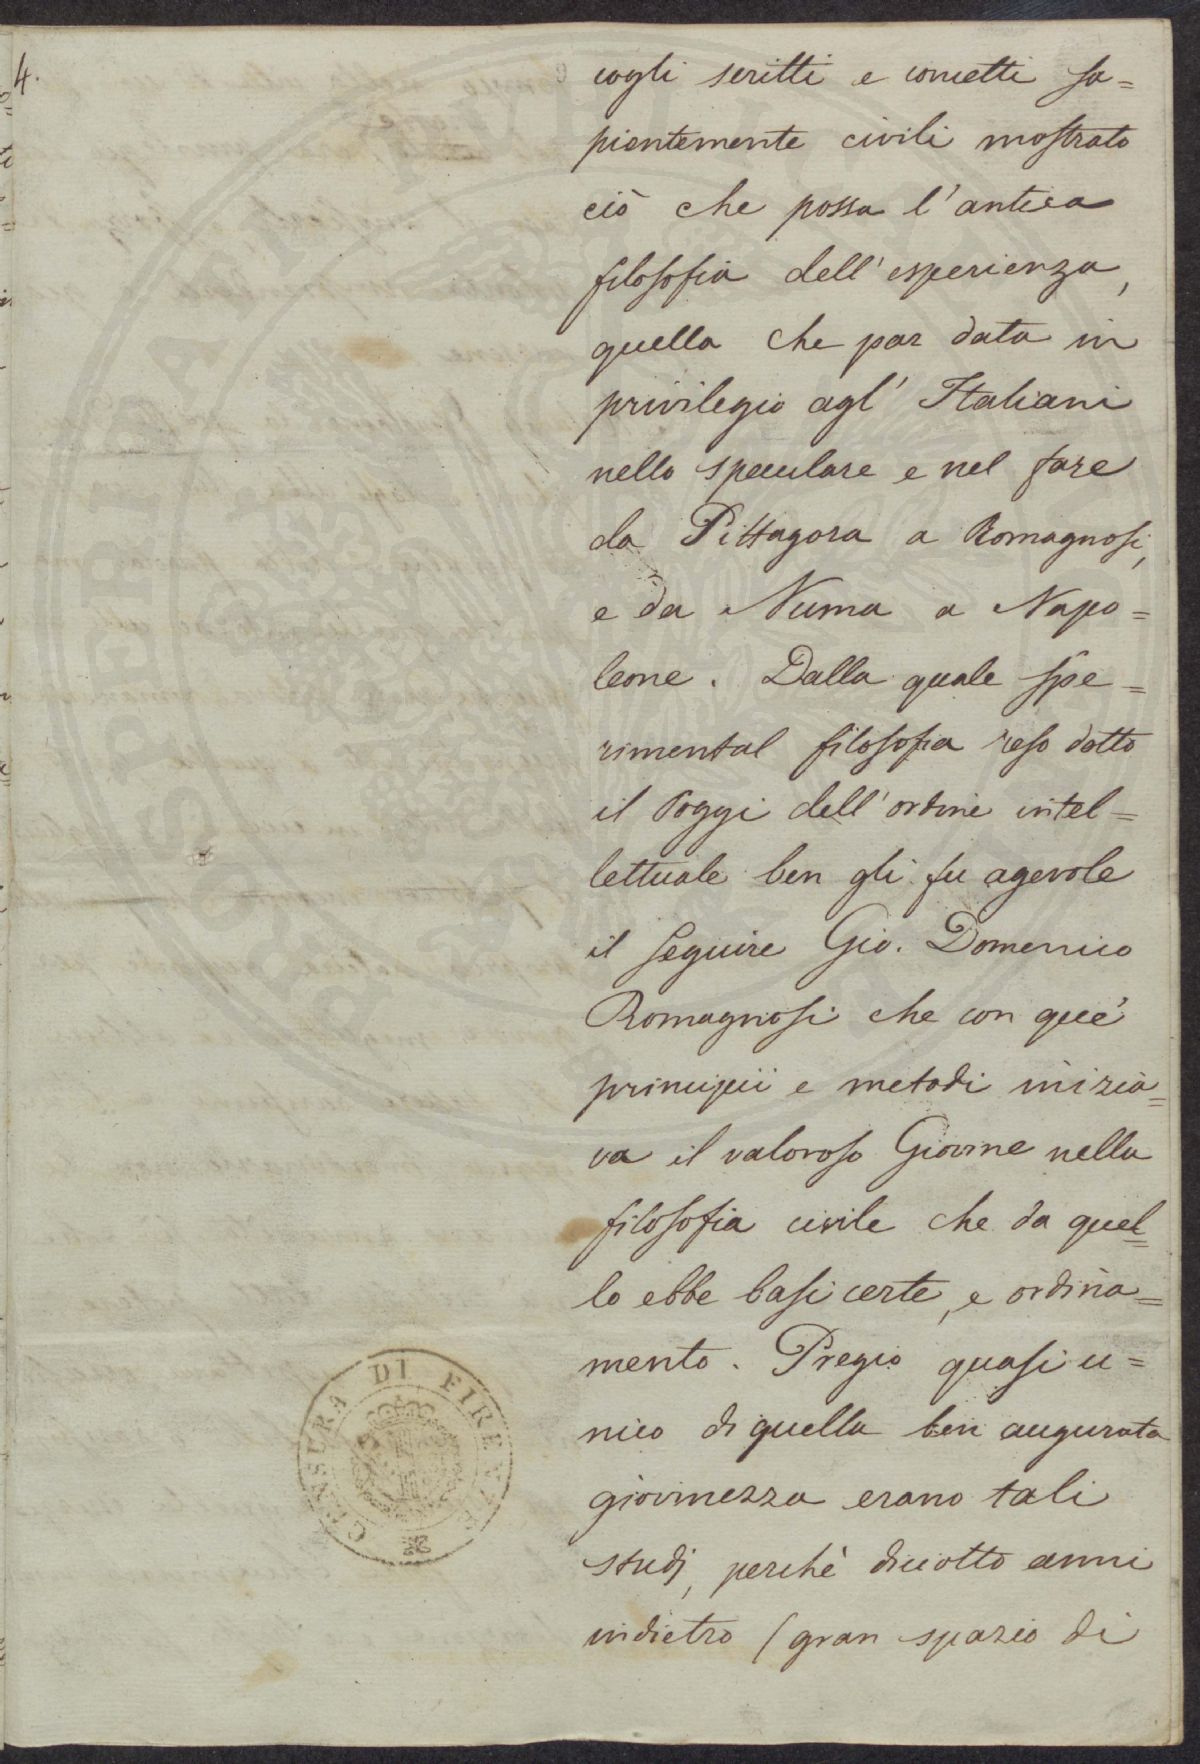 4.
cogli scritti e concetti sa=
pientemente civili mostrato
ciò che possa l'antica
filosofia dell'esperienza,
quella che par data in
privilegio agl'Italiani
nello speculare e nel fare
da Pittagora a Romagnosi,
e da Numa a Napo=
leone. Dalla quale spe=
rimental filosofia reso dotto
il Poggi dell'ordine intel=
lettuale ben gli fu agevole
il seguire Gio. Domenico
Romagnosi che con que'
principii e metodi inizia=
va il valoroso Giovine nella
filosofia civile che da quel=
lo ebbe basi certe, e ordina=
mento. Pregio quasi u=
nico di quella ben augurata
giovinezza erano tali
studj, perchè diciotto anni
indietro (gran spazio di
CENSURA DI FIRENZE